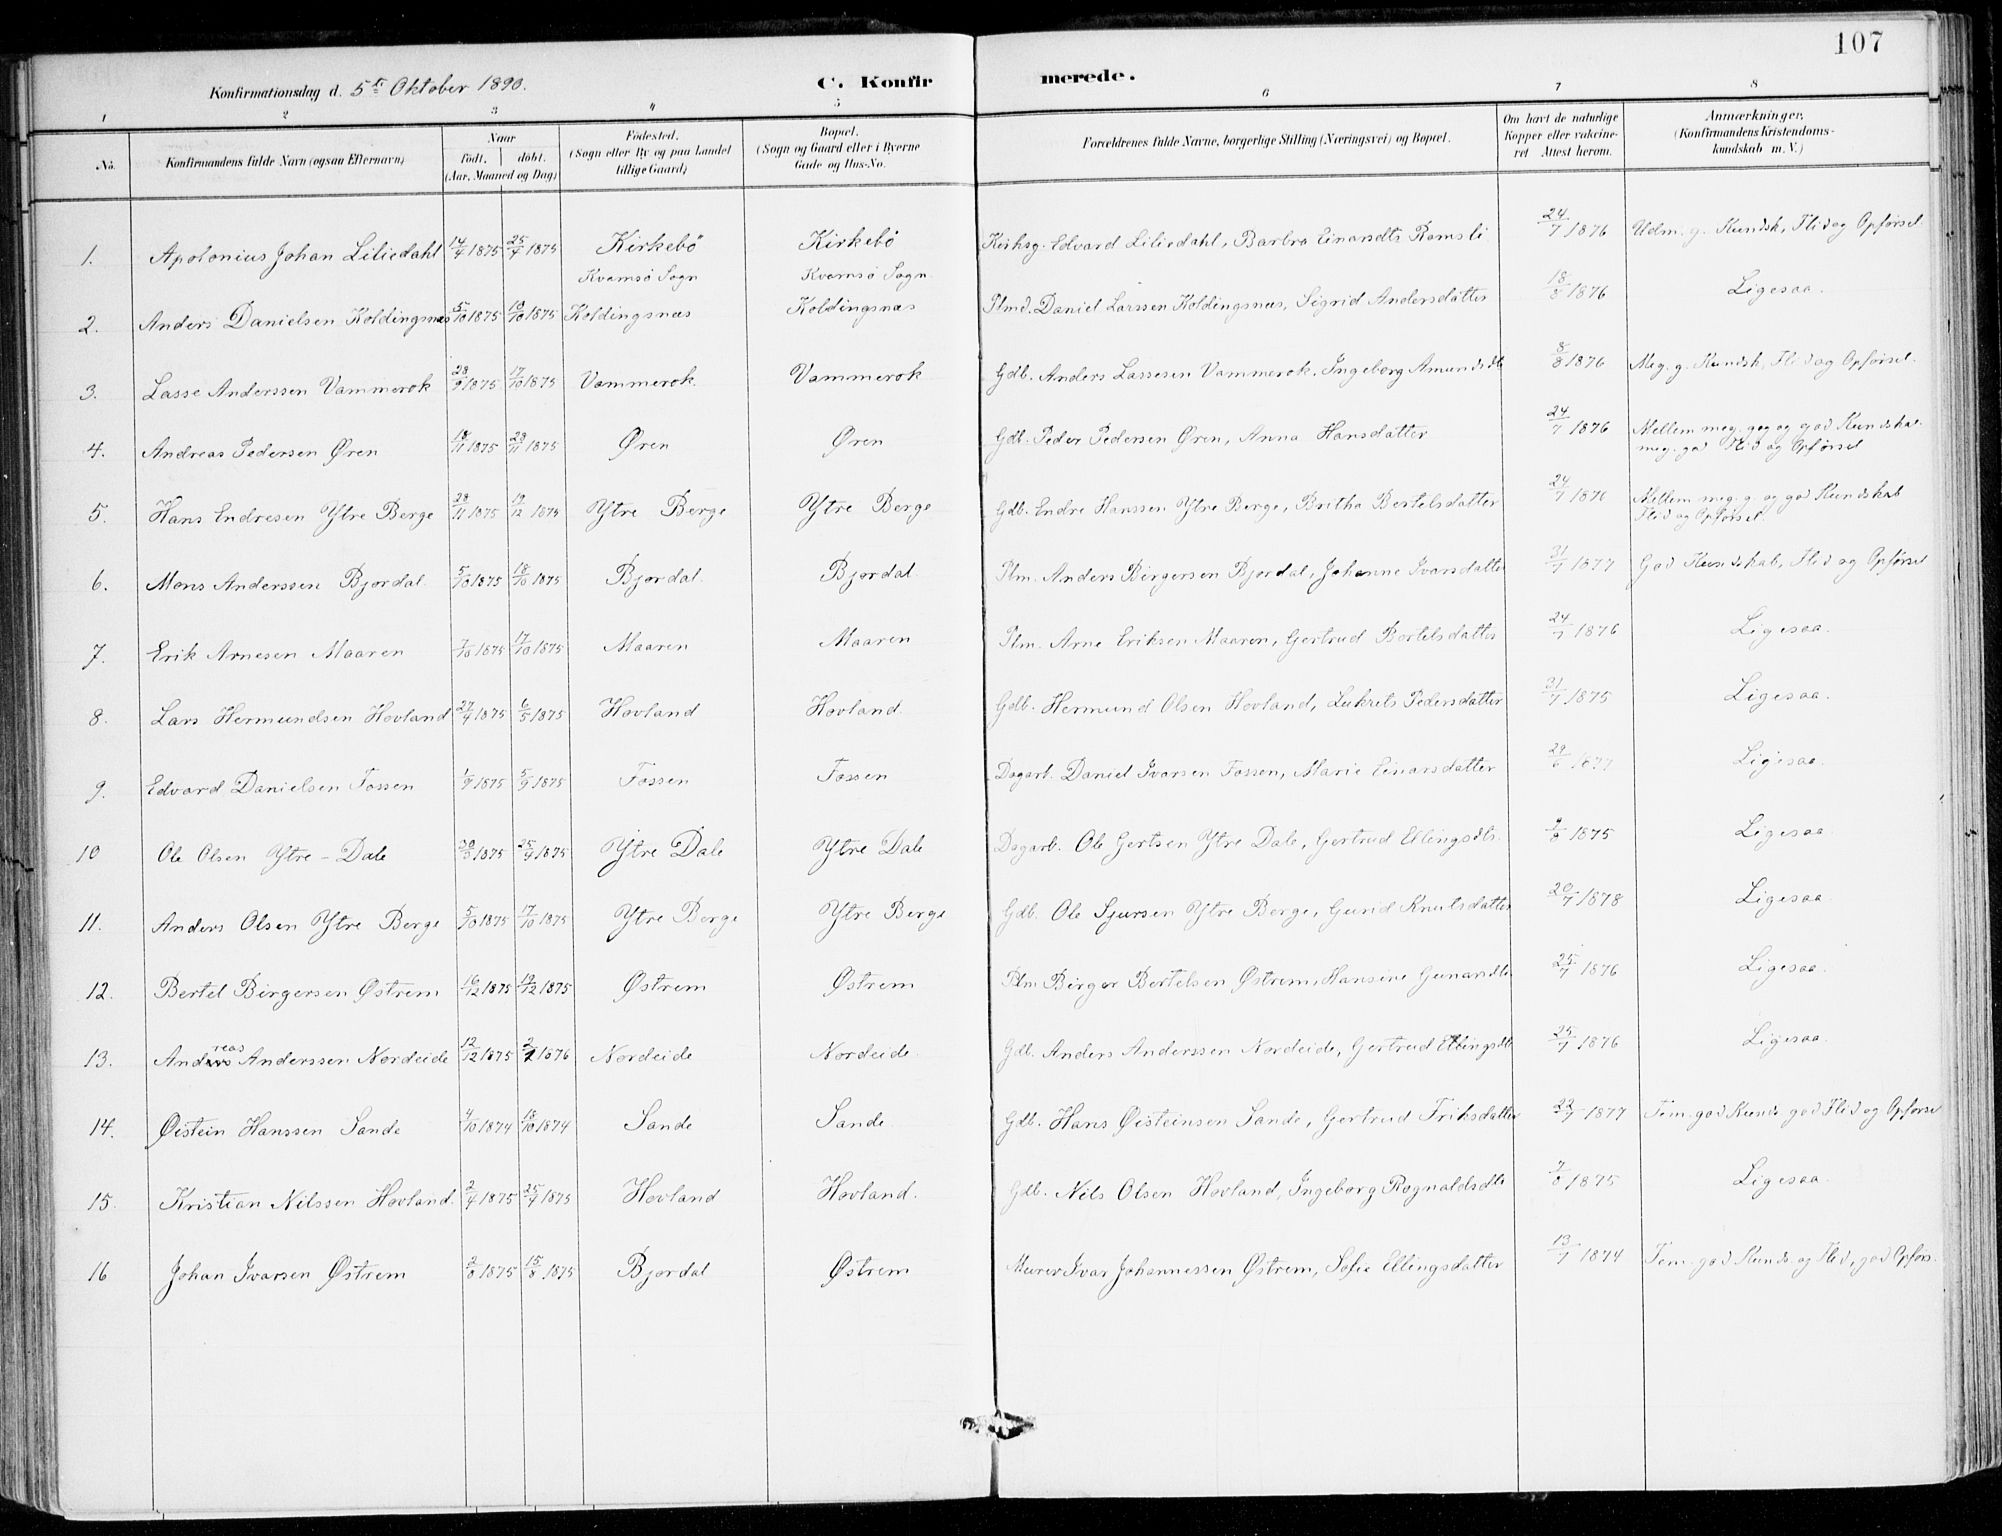 107
Konfirmationsdag d. 5te Oktober 1890. C. Konfirmerede.
1 2 3 4 5 6 7 8
No. Konfirmandens fulde Navn (ogsaa Efternavn) Naar født, døbt. (Aar, Maaned og Dag) Fødested. (Sogn eller By og paa Landet tillige Gaard) Bopæl. (Sogn og Gaard eller i Byerne Gade og Hus-No. Forældrenes fulde Navne, borgerlige Stilling (Næringsvei) og Bopæl. Om havt de naturlige Kopper eller vakcineret Attest herom. Anmærkninger, (Konfirmandens Kristendomskundskab m. V.)
1. Apolonius Johan Liliedahl 14/4 1875 25/4 1875 Kirkebö Kirkebö Kirksg. Edvard Liliedahl, Barbra Einarsdtr Ramsli 24/7 1876 Udm. g. Kundsk, Flid og Opförsel.
Kvamsö Sogn Kvamsö Sogn
2. Anders Danielsen Koldingsnæs 5/10 1875 10/10 1875 Koldingsnæs Koldingsnæs Plmd. Daniel Larssen Koldingsnæs, Sigrid Andersdatter 18/8 1876 Ligesaa.
3. Lasse Anderssen Vammerok 28/9 1875 17/10 1875 Vammerok Vammerok Gdb. Anders Lassesen Vammerok, Ingeborg Amundsdtr 8/8 1876 Meg. g. Kundsk, Flid og Opförsel.
4. Andreas Pedersen Øren 18/11 1875 28/11 1875 Øren Øren Gdb. Peder Pedersen Øren, Anna Hansdatter 24/7 1876 Mellem meg. gog og god Kundskab
meg. god Flid og Opförsel
5. Hans Endresen Ytre Berge 28/11 1875 19/12 1875 Ytre Berge Ytre Berge Gdb. Endre Hanssen Ytre Berge, Britha Bertelsdatter 24/7 1876 Mellem meg. g. og god Kundskab
Flid og Opförsel.
6. Mons Anderssen Bjordal 5/10 1875 18/10 1875 Bjordal. Bjordal Plm. Anders Birgersen Bjordal, Johanne Ivarsdatter 31/7 1877 God Kundskab, Flid og Opförsel
7. Erik Arnesen Maaren 7/10 1875 17/10 1875 Maaren Maaren Plm. Arne Eriksen Maaren, Gertrud Bertelsdatter 24/7 1876 Ligesaa.
8. Lars Hermundsen Hovland 27/4 1875 6/5 1875 Hovland Hovland Gdb. Hermund Olsen Hovland, Lukrets Pedersdatter 31/7 1875 Ligesaa.
9. Edvard Danielsen Fossen 1/9 1875 5/9 1875 Fossen Fossen Dagarb. Daniel Ivarsen Fossen, Marie Einarsdatter 29/6 1877 Ligesaa.
10 Ole Olsen Ytre-Dale 1875 25/4 1875 Ytre Dale Ytre Dale Dagarb. Ole Gertsen Ytre Dale, Gertrud Ellingsdtr. 1875 Ligesaa.
11. Anders Olsen Ytre Berge 5/10 1875 17/10 1875 Ytre Berge Ytre Berge Gdb. Ole Sjursen Ytre Berge, Gunid Knutsdatter 20/7 1878 Ligesaa.
12. Bertel Birgersen Østrem 16/12 1875 19/12 1875 Østrem Østrem Plm Birger Bertelsen Østrem, Hansine Gunarsdtr 25/7 1876 Ligesaa.
13. Andreas Anderssen Nordeide 12/12 1875 2/1 1876 Nordeide Nordeide. Gdb. Anders Anderssen Nordeide, Gertrud Ellingsdtr 25/7 1876 Ligesaa.
14. Øistein Hanssen Sande 4/10 1874 18/10 1874 Sande Sande. Gdb. Hans Øisteinsen Sande, Gertrud Eriksdatter 23/7 1877 Tem. god Kunds god Flid og Opförsel
15. Kristian Nilssen Hovland. 2/4 1875 25/4 1875 Hovland Hovland. Gdb. Nils Olsen Hovland, Ingeborg Rognaldsdtr 7/8 1875 Ligesaa.
16 Johan Ivarsen Østrem 2/8 1875 15/8 1875 Bjordal Østrem Murer Ivar Johannessen Østrem, Sofie Ellingsdatter 13/7 1874 Tem. god Kunds. og Flid, god Opførs.